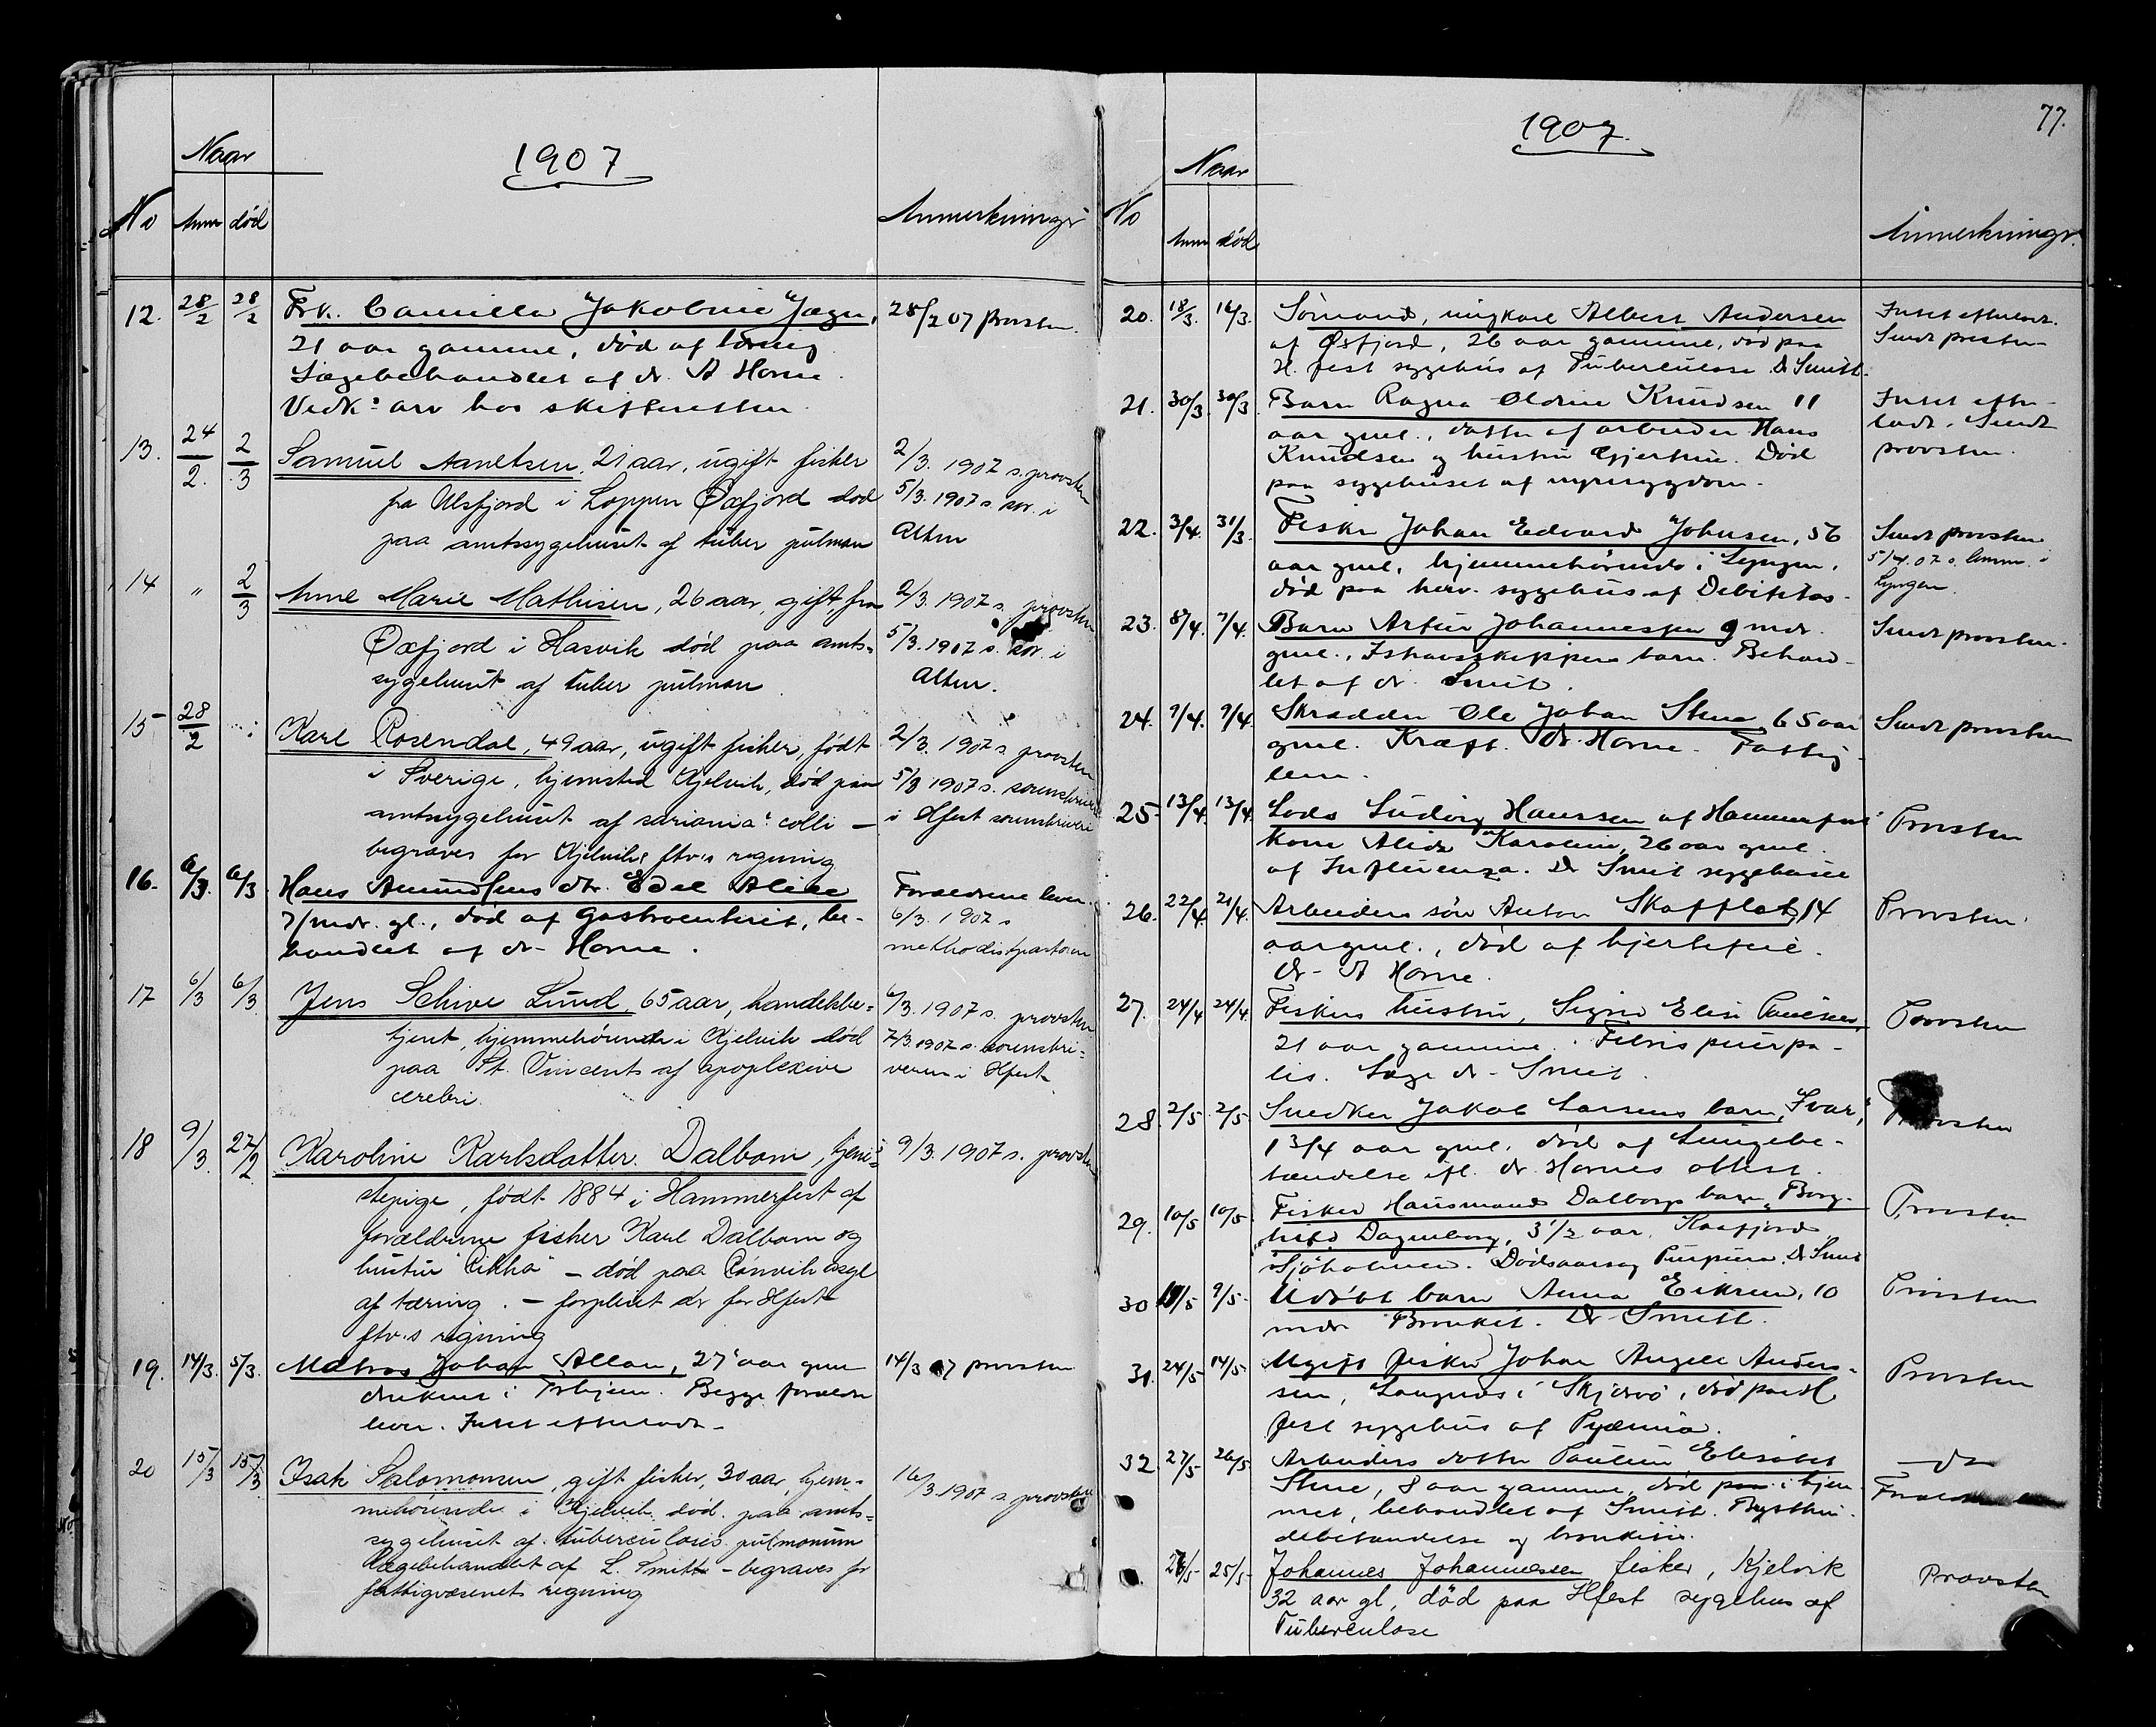 Naar
1907
No Anm død Anmerkninger
12. 28/2 28/2 Frk. Camilla Jakobine Jæger, 28/2 07 provsten.
21 aar gamme, død af tæring
Lægebehandlet af dr. A Horne.
Vedk: arv hos skifteretten.
13. 24/2. 2/3 Samuel Anetsen, 21 aar, ugift fisker 2/3. 1907 s. provsten
fra Ulsfjord i Loppen Øxfjord død 5/3. 1907 s. sor. i
paa amtssygehuset af tuber pulmon Alten
14 " 2/3 Anne Marie Mathisen, 26 aar, gift, fra 2/3. 1907 s. provsten
Øxfjord i Hasvik død paa amts- 5/3. 1907 s. sor. i
sygehuset af tuber pulmon. Alten.
15 28/2 Karl Rosendal, 49 aar, ugift fisker, født 2/3. 1907 s. provsten
i Sverige, hjemsted Kjelvik, død paa 5/3 1907 s. sorenskriveren
amtssygehuset af colli — i Hfest sorenskriveri
begraves for Kjelviks ftv.s regning
16. 6/3. 6/3 Hans Amundsens dtr. Edel Alise Forældrene lever.
7/mdr. gl., død af Gastroenterit, be- 6/3. 1907 s
handlet af dr- Horne. methodistpastoren
17 6/3 6/3 Jens Schive Lund, 65 aar, handelsbe- 6/3. 1907 s. provsten
tjent, hjemmehørende i Kjelvik død 7/3. 1907 s. sorenskri-
paa St. Vincents af apoplexive veren i Hfest
cerebri.
18 9/3. 27/2 Karoline Karlsdatter Dalbom, tjene- 9/3. 1907 s. provsten
stepige, født 1884 i Hammerfest af
forældrene fisker Karl Dalbom og
hustru "Rikka" — død paa Rønvik asyl
af tæring. — forpleiet der for Hfest
ftv.s regning
19. 14/3. 5/3. Matros Johan Allan, 27 aar gml 14/3 07 provsten
druknet i Trhjem. Begge forældre
lever. Intet efterladt.
20 15/3 15/3 Isak Salomonsen, gift fisker, 30 aar, hjem- 16/3. 1907 s. provsten
mehørende i Kjelvik død paa amts-
sygehuset af tuberculosis pulmonum
Lægebehandlet af L. Smitt — begraves for
fattigvæsenets regning
77.
1907.
Naar
No Anm død Anmerkninger.
20. 18/3. 16/3. Sømand, ungkarl Albert Andersen Intet efterladt.
af Øxfjord, 26 aar gamme, død paa Sendt presten
H. fest sygehus af Tuberculose. Dr Smitt.
21. 30/3 30/3 Barn Ragna Oldine Knudsen 11 Intet efter-
aar gml., datter af arbeider Hans ladt. Sendt
Knudsen og hustru Gjertine. Død provsten.
paa sygehuset af nyresygdom.
22. 3/4. 31/3. Fisker Johan Edvard Johnsen, 56 Sendt provsten
aar gml, hjemmehørende i Lyngen, 5/4. 07 s. lensm. i
død paa herv. sygehus af Debilitas. Lyngen.
23. 8/4. 7/4. Barn Artur Johannessen 9 mdr. Sendt provsten.
gml., Ishavsskippers barn. Behand-
let af dr. Smitt.
24. 9/4. 9/4. Skrædder Ole Johan Stene 65 aar Sendt provsten
gml. Kræft. Dr. Horne. Fattig-
lem.
25 13/4. 13/4. Lods Ludvig Hanssen af Hammerfest Provsten
kone Alida Karoline, 26 aar gml.
af Influenza. Dr Smitt sygehuset
26. 22/4. 21/4. Arbeiders søn Anton Skafflet, 14 Provsten.
aar gml., død af hjertefeil.
dr- A Horne.
27. 24/4 24/4. Fiskers hustru, Signe Elise Paulsen, Provsten
21 aar gamme. Febris puerpe-
lis. Læge dr- Smitt.
28. 2/5. 2/5. Snedker Jakob Larsens barn, "Ivar", Provsten
1 3/4 aar gml. død af Lungebe-
tændelse ifl. dr. Hornes attest.
29. 10/5 10/5. Fisker Hansmand Dalborgs barn "Borg- Provsten
hild Dagnborg, 3 1/2 aar. Kaafjord
Sjøholmen. Dødsaarsag Purpura. Dr Smitt
30 11/5 9/5. Udøbt barn Anna Eikrem, 10 Provsten
mdr Bronkit. Dr Smitt.
31. 24/5 14/5. Ugift fisker Johan Angell Anders- Provsten
sen, Langnes i Skjervø, død paa H
fest sygehus af Pyæmia.
32. 27/5 26/5. Arbeiders datter Pauline Elisabet do
Stene, 8 aar gamme, død i hjem-
met, behandlet af Smitt. Brysthin-
debetændelse og bronkitis.
26/5 25/5 Johannes Johannessen fisker, Kjelvik Provsten
32 aar gl, død paa Hfest sygehus af
Tuberculose